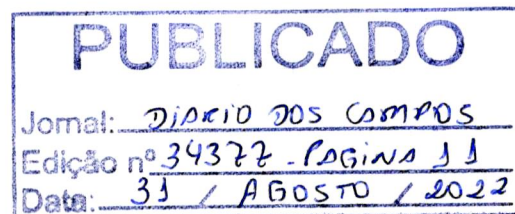 PUBLICADO
Jornal: DIARIO DOS CAMPOS
Edição nº 34377 - PAGINA 11
Data: 31 / AGOSTO / 2022